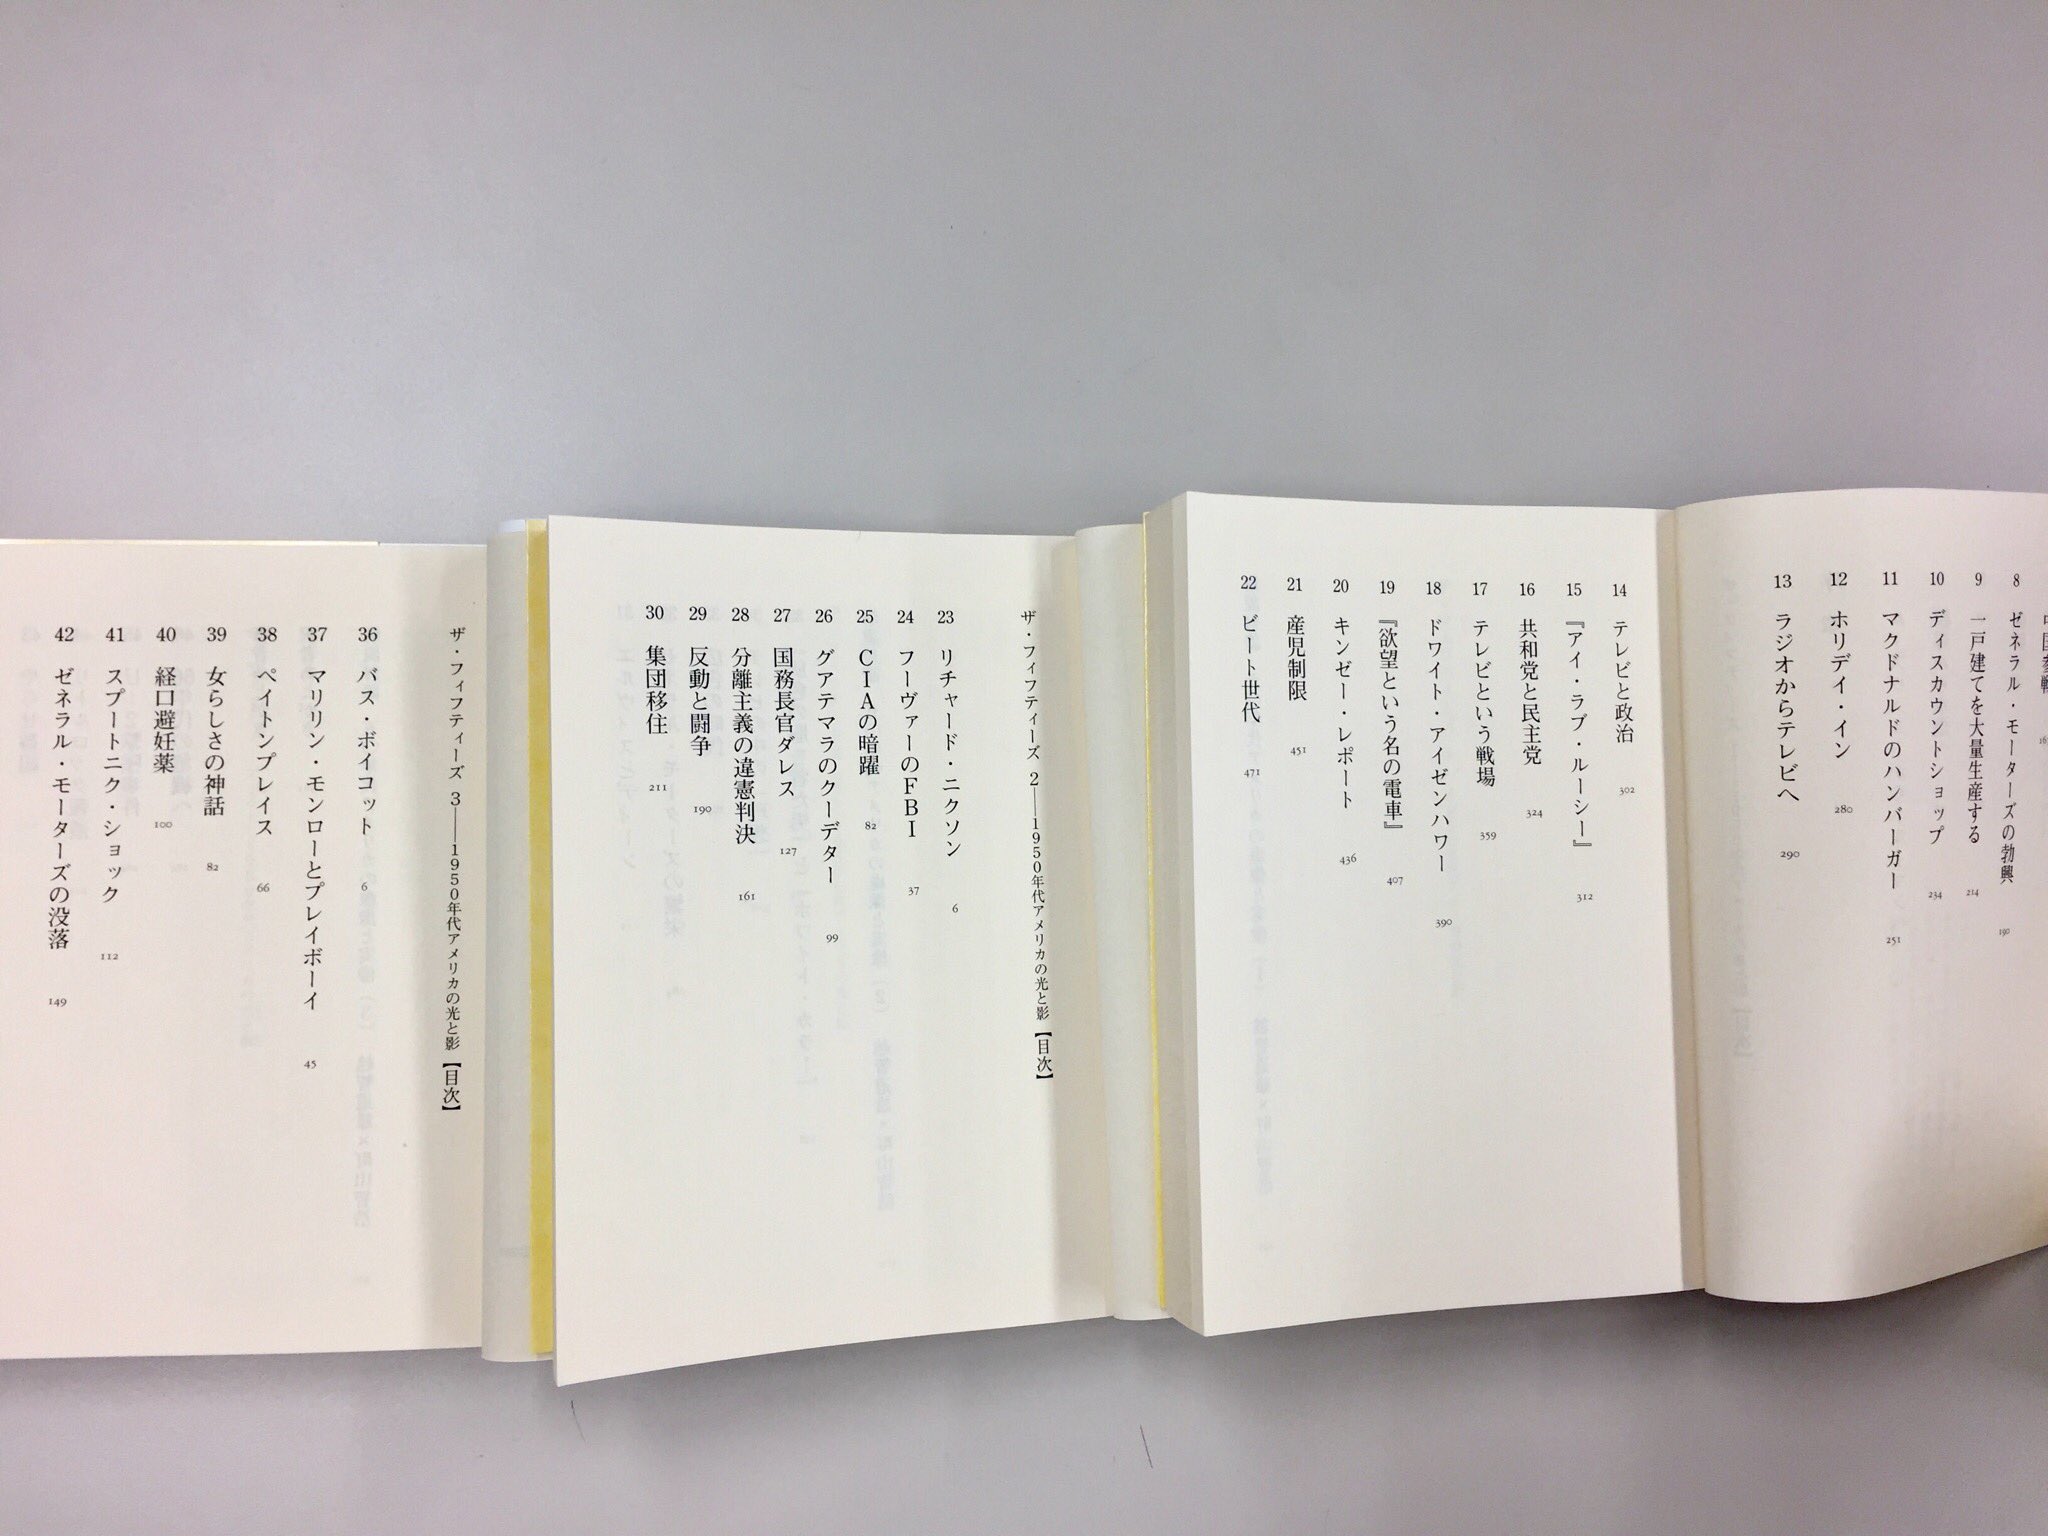 8 ゼネラル・モーターズの勃興 190
9 一戸建てを大量生産する 214
10 ディスカウントショップ 234
11 マクドナルドのハンバーガー 251
12 ホリデイ・イン 280
13 ラジオからテレビへ 290
14 テレビと政治 302
15 『アイ・ラブ・ルーシー』 312
16 共和党と民主党 324
17 テレビという戦場 359
18 ドワイト・アイゼンハワー 390
19 『欲望という名の電車』 407
20 キンゼー・レポート 436
21 産児制限 451
22 ビート世代 471
ザ・フィフティーズ 2──1950年代アメリカの光と影【目次】
23 リチャード・ニクソン 6
24 フーヴァーのFBI 37
25 CIAの暗躍 82
26 グアテマラのクーデター 99
27 国務長官ダレス 127
28 分離主義の違憲判決 161
29 反動と闘争 190
30 集団移住 211
ザ・フィフティーズ 3──1950年代アメリカの光と影【目次】
36 バス・ボイコット 6
37 マリリン・モンローとプレイボーイ 45
38 ペイトンプレイス 66
39 女らしさの神話 82
40 経口避妊薬 100
41 スプートニク・ショック 112
42 ゼネラル・モーターズの没落 149